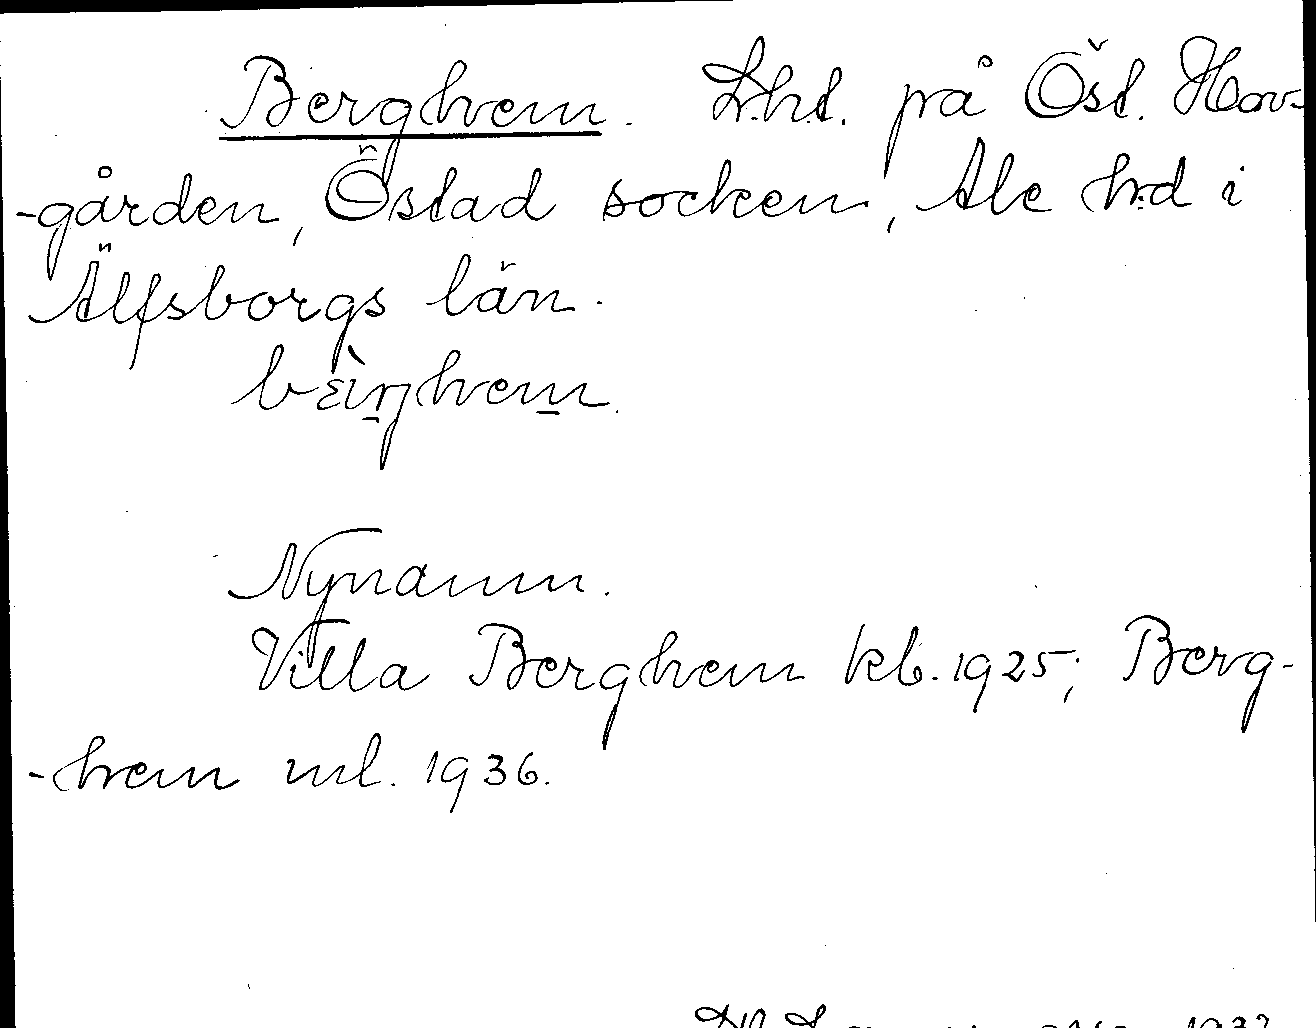 Berghem. Lht. på Öst. Hov-
-gården, Östad socken, Ale hd i
Älfsborgs län.
Nynamn.
Villa Berghem kb. 1925; Berg-
-hem ml. 1936.